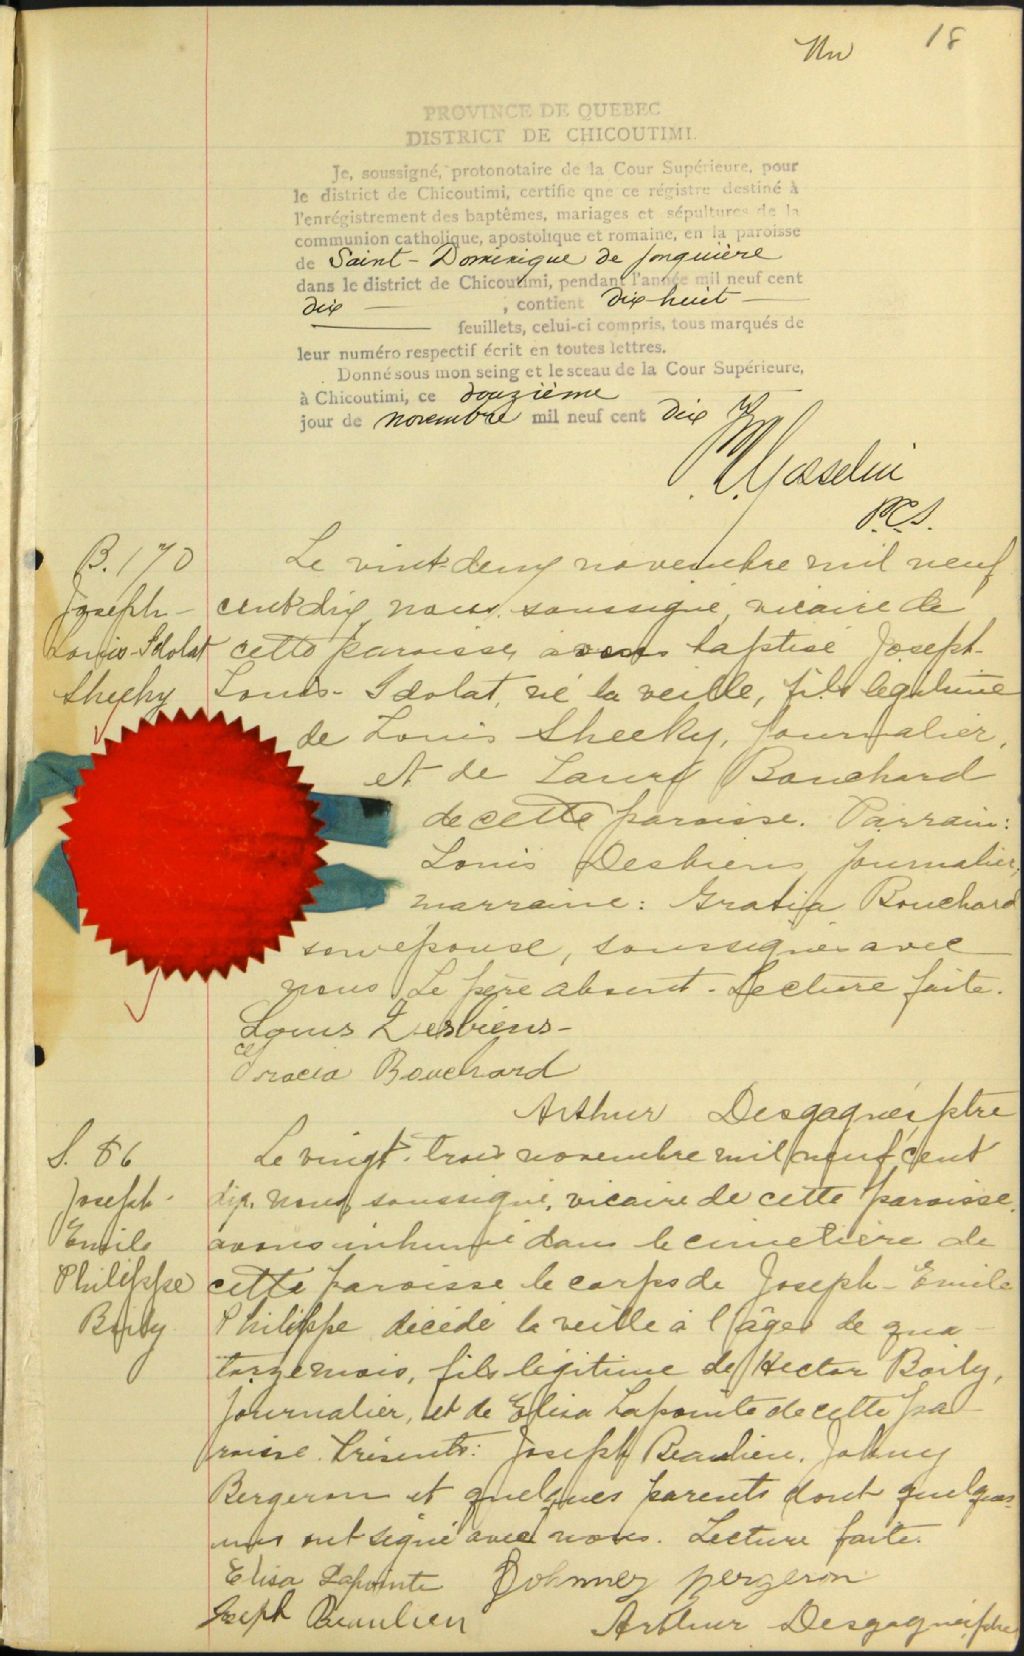 Un 18
PROVINCE DE QUEBEC
DISTRICT DE CHICOUTIMI.
Je, soussigné, protonotaire de la Cour Supérieure, pour
le district de Chicoutimi, certifie qne ce régistre destiné à
l'enrégistrement des baptêmes, mariages et sépultures de la
communion catholique, apostolique et romaine, en la paroisse
de Saint-Dominique de Jonquière
dans le district de Chicoutimi, pendant l'année mil neuf cent
dix , contient dix huit
feuillets, celui-ci compris, tous marqués de
leur numéro respectif écrit en toutes lettres.
Donné sous mon seing et le sceau de la Cour Supérieure,
à Chicoutimi, ce douzième
jour de novembre mil neuf cent dix
Gosselin
P.C.S.
B. 170
Joseph-
Louis-Idolat
Sheehy
Le vint-deux novembre mil neuf
cent dix, nous, soussigné, vicaire de
cette paroisse, avons baptisé Joseph-
Louis-Idolat, né la veille, fils légitime
de Louis Sheeky, journalier,
et de Laura Bouchard
de cette paroisse. Parrain:
Louis Desbiens, journalier,
marraine: Gratia Bouchard
son épouse, soussignés avec
nous. Le père absent. Lecture faite.
Louis Desbiens-
Gracia Bouchard
Arthur Desgagnés, ptre
S. 86
Joseph-
Emile
Philippe
Boily
Le vingt-trois novembre mil neuf cent
dix, nous, soussigné, vicaire de cette paroisse,
avons inhumé dans le cimetière de
cette paroisse le corps de Joseph-Emile
Philippe décédé la veille à l'âge de qua-
torze mois, fils légitime de Hector Boily,
journalier, et de Elisa Lapointe de cette pa-
roisse. Présents: Joseph Beaulieu, Johnny
Bergeron et quelques parents dont quelques-
uns ont signé avec nous. Lecture faite.
Elisa Lapointe Johnney Bergeron
Joseph Beaulieu Arthur Desgagnés, ptre